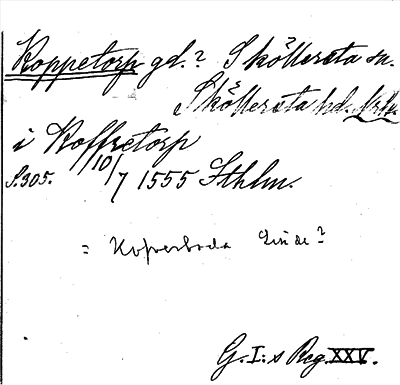 Koppetorp gd.? Sköllersta sn.
Sköllersta hd.
i Koffretorp
S. 305. 10/7 1555 Sthlm.
= Kopverboda
G. I:s Reg. XXV.